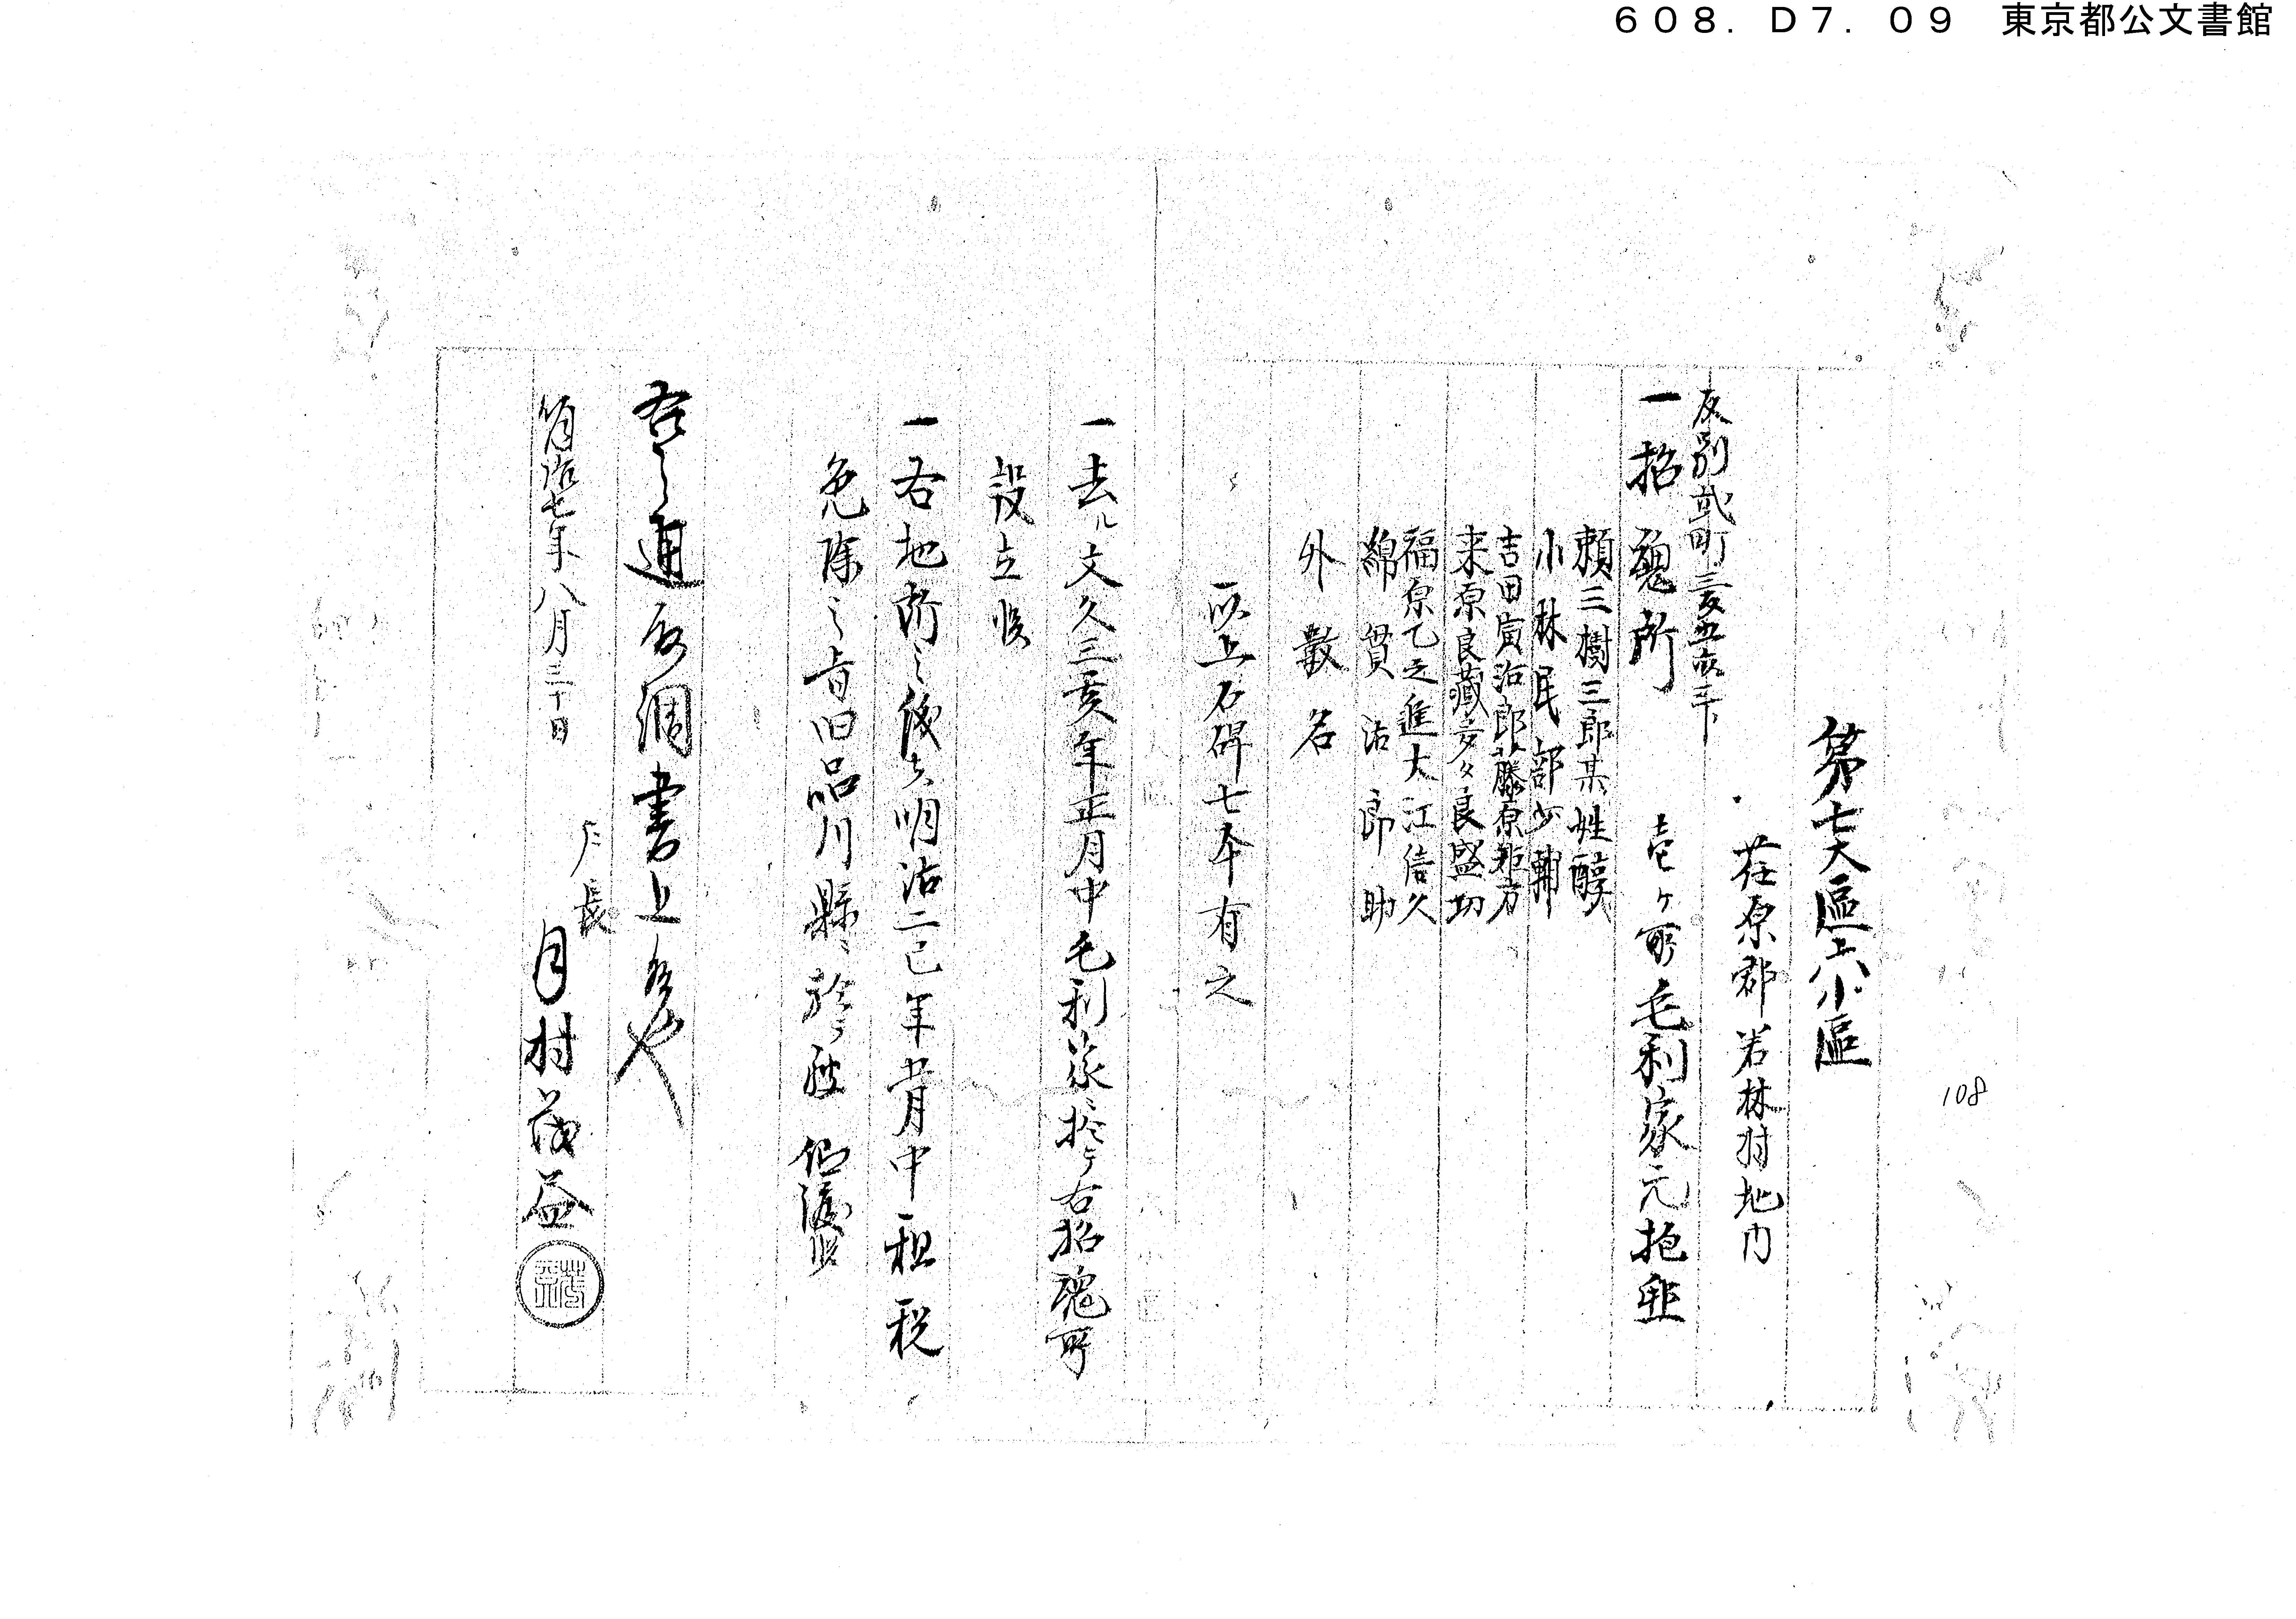 608. D7. 09 東京都公文書館
第七大區上六小區
荏原郡若林村地内
反別弐町三反五畝三卜
一招魂所 壱ヶ所毛利家元抱
頼三樹三郎某姓醇
小林民部少輔
吉田寅治郎藤原矩方
来原良藏多々良盛功
福原乙之進大江信久
綿貫治郎助
外数名
以上石碑七本有之
一去ル文久三亥年正月中毛利家ニ於テ右招魂所
設立候
一右地所之儀者明治二巳年 月中租税
免除之旨旧品川縣ニ於テ 候
右之通取調書上候也
明治七年八月三十日
戸長
月村茂益
108